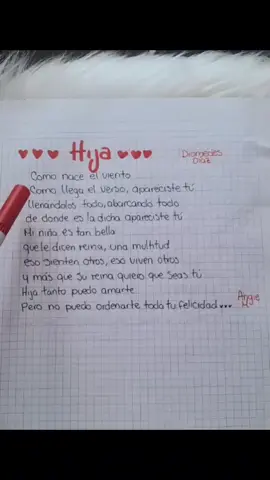 Hija
Diomedes
Díaz
Como nace el viento
Como llega el verso, apareciste tú
llenándolos todo, abarcando todo
de donde es la dicha apareciste tú
Mi niña es tan bella
que le dicen reina, una multitud
eso sienten otros, eso viven otros
y más que su reina quiero que seas tú
Hija tanto puedo amarte
Pero no puedo ordenarte toda tu felicidad...
Angie
M